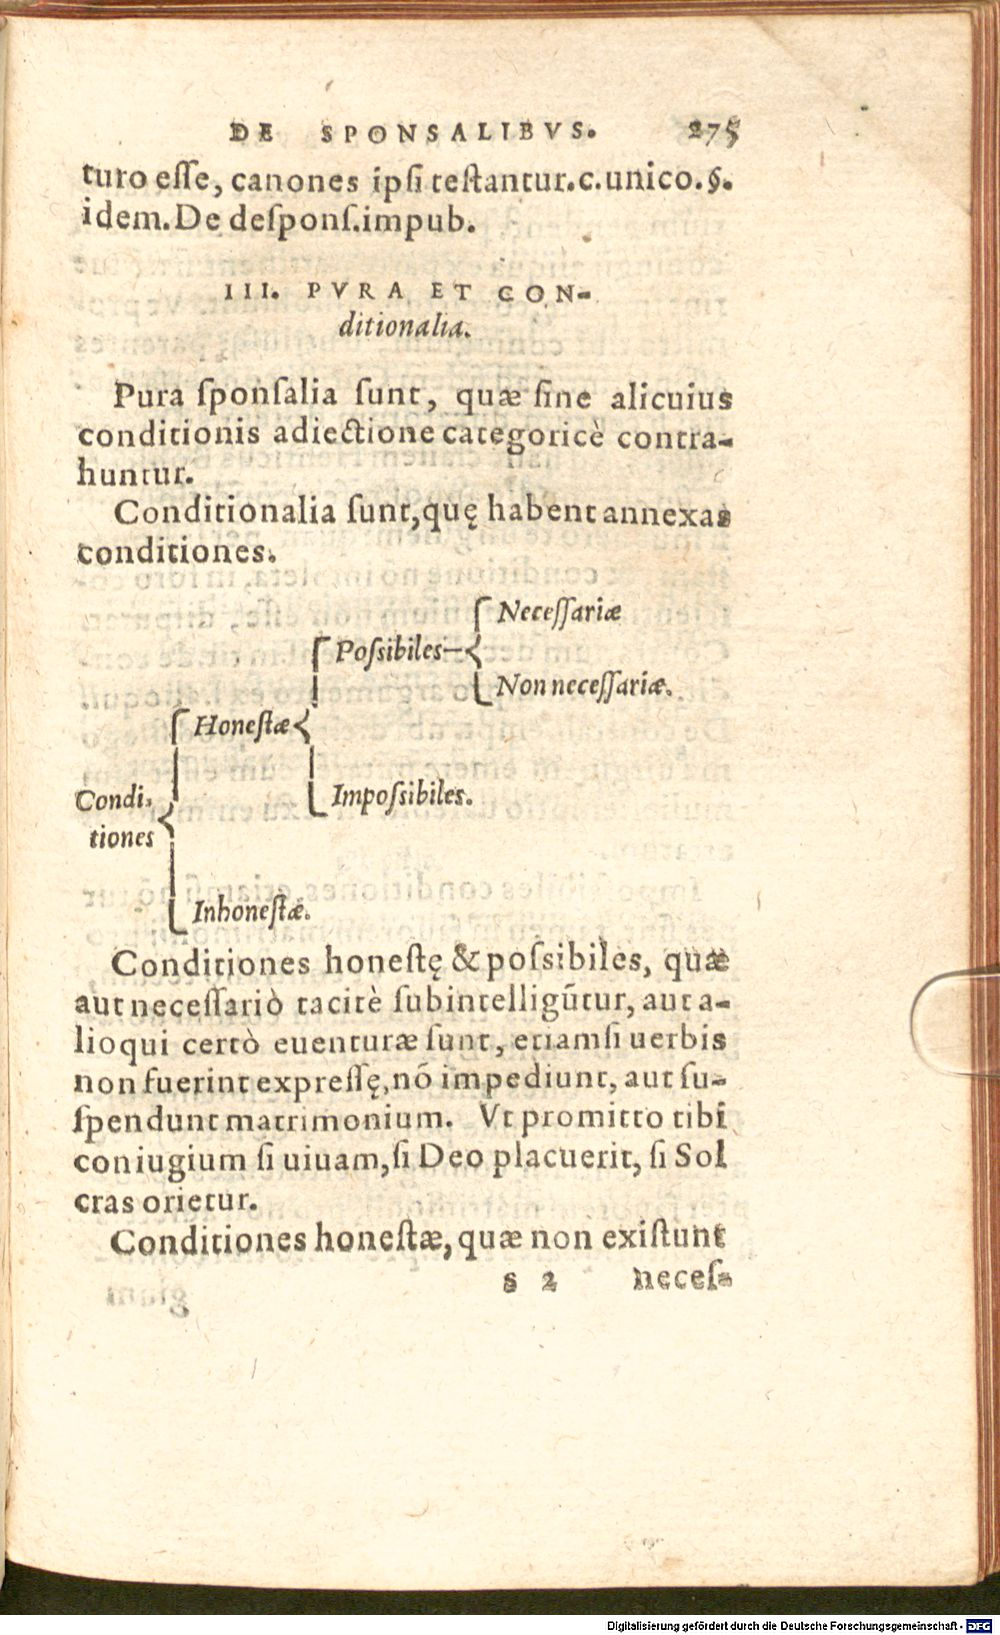 DE SPONSALIBVS. 275
turo esse, canones ipsi testantur.c.unico.§.
idem.De despons.impub.
III. PVRA ET CON-
ditionalia.
Pura sponsalia sunt, quæ sine alicuius
conditionis adiectione categoricè contra-
huntur.
Conditionalia sunt,quę habent annexas
conditiones.
Necessariæ
Possibiles
Non necessariæ.
Honestæ
Impossibiles.
Condi-
tiones
Inhonestæ.
Conditiones honestę & possibiles, quæ
aut necessariò tacitè subintelligũtur, aut a-
lioqui certò euenturæ sunt, etiamsi uerbis
non fuerint expressę,nõ impediunt, aut su-
spendunt matrimonium. Vt promitto tibi
coniugium si uiuam,si Deo placuerit, si Sol
cras orietur.
Conditiones honestæ,quæ non existunt
s 2 neces-
Digitalisierung gefördert durch die Deutsche Forschungsgemeinschaft - DFG